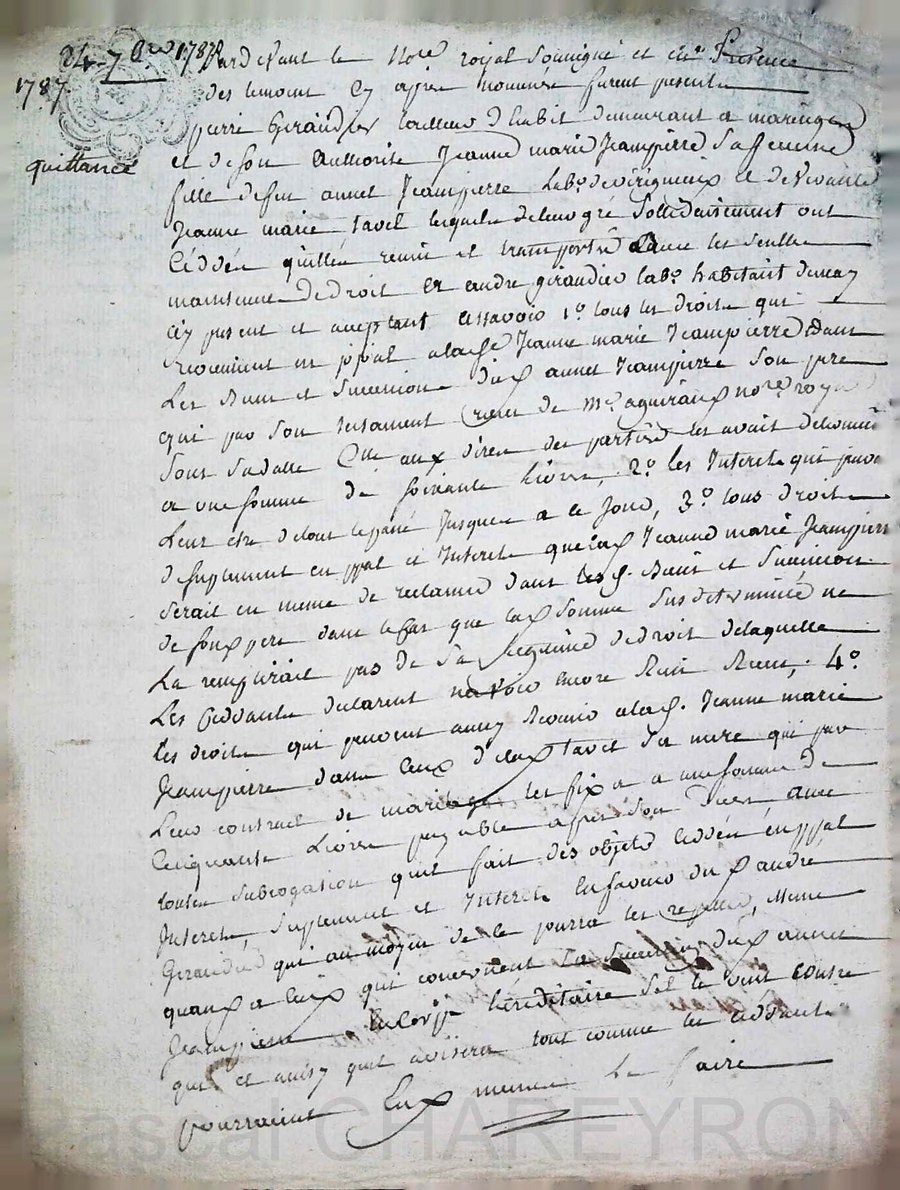 24 7bre 1787
1787
quittance
Pardevant le Nore royal Soussigné et en Presence
des temoins Cy apres nommés furent presents
pierre Giraudier tailleur d'habit demeurant a maringes
et de son Authorité Jeanne marie Jeampierre Sa femme
fille de feu annet Jeampierre Labr de et de vivante
Jeanne marie tavel lesquels de leur gré Sollidairement ont
Céddés quittés remis et transportés avec les seulle
maintenue de droit a andre giraudier labr habitant de
Cy present et acceptant assavoir 1o tous les droits qui
reviennent en ppal a lad Jeanne marie Jeampierre dans
Les Biens et Succession dud annet Jeampierre Son pere
qui par Son testament receu de Me aguiraud nore royal
Sous Sa datte aux dires des parties les avait determinés
a une somme de soixante Livres, 2o les Interets qui peuvent
Leur etre deus de tout le passé Jusques a ce Jour, 3o tous droits
de suplement en ppal et Interets que lad Jeanne marie Jeampierre
serait en meme de reclamer dans lesd. Biens et Succession
de son pere dans le Cas que lad Somme Sus determinée ne
La remplirait pas de Sa legitime de droit de laquelle
Les Ceddants declarent navoir encore Rien Receu, 4o
les droits qui peuvent aussy Revenir a lad. Jeanne marie
Jeampierre dans Ceux de lad tavel Sa mere qui par
Leur contract de mariage les fixa a une somme de
Cinquante Livres payable apres Son Deces avec
toutes Subrogation quils font des objets Ceddés en ppal
Interets, Suplement et Interets En faveur dud andré
Giraudier qui au moyen de ce pourra les repeter, meme
quand a Ceux qui concernent La Succession dud annet
Jeampierre hereditaire Sil le veut contre
qui et ainsy quil avisera tout comme les ceddants
pourraient Eux memes Le faire
Pascal CHAREYRON